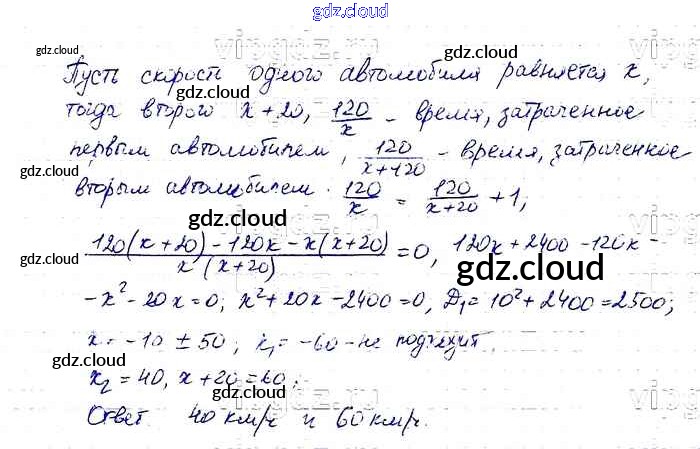 gdz.cloud
Пусть скорость одного автомобиля равняется x,
тогда второго x+20, 120/x - время, затраченное
первым автомобилем, 120/(x+120) - время, затраченное
вторым автомобилем. 120/x = 120/(x+20) + 1;
(120(x+20) - 120x - x(x+20))/(x(x+20)) = 0, 120x + 2400 - 120x -
- x² - 20x = 0; x² + 20x - 2400 = 0, D₁ = 10² + 2400 = 2500;
x = -10 ± 50; x₁ = -60 - не подходит
x₂ = 40, x + 20 = 60;
Ответ 40 км/ч и 60 км/ч.
gdz.cloud
gdz.cloud
gdz.cloud
gdz.cloud
gdz.cloud
gdz.cloud
gdz.cloud
gdz.cloud
gdz.cloud
gdz.cloud